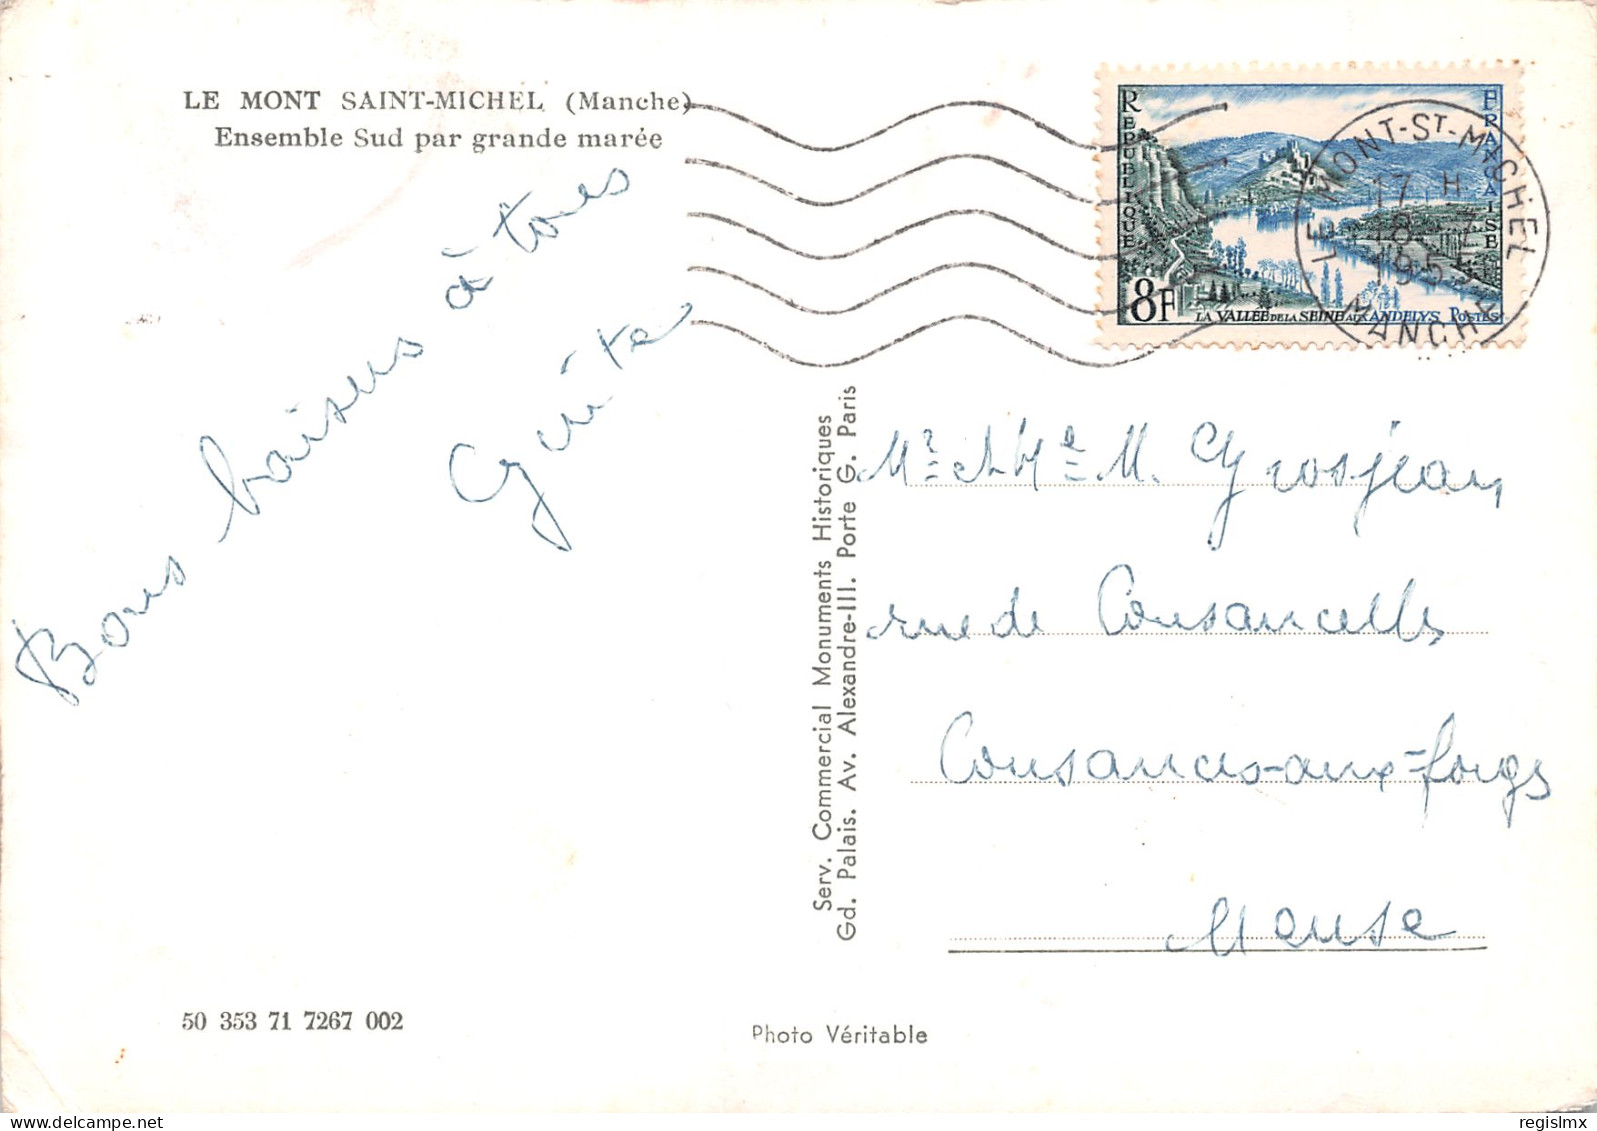 LE MONT SAINT-MICHEL (Manche)
Ensemble Sud par grande marée
Bons baisers à tous
Guite
RÉPUBLIQUE
FRANÇAISE
8F
LA VALLÉE DE LA SEINE AUX ANDELYS POSTES
LE MONT-ST-MICHEL
17 H
18 - 7
1955
MANCHE
Serv. Commercial Monuments Historiques
Gd. Palais. Av. Alexandre-III. Porte G. Paris
Mr et Me M. Grosjean
rue de Cousancelles
Cousances-aux-forges
Meuse
50 353 71 7267 002
Photo Véritable
regislmx